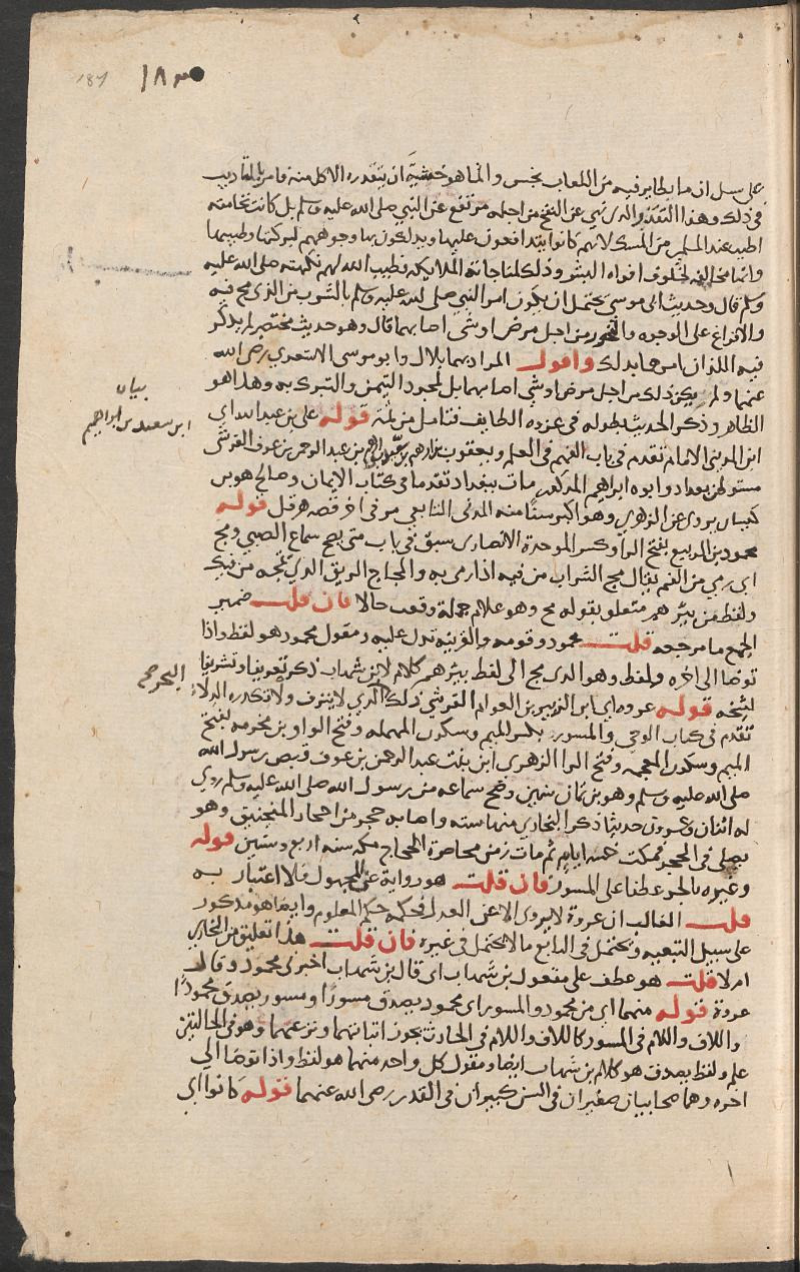 ١٨٣
187
على سبيل ان ما يطاير فيه من اللعاب نجس وانما هو خشية ان يتقذره الاكل منه فامر بالتاديب
في ذلك وهذا التقذر الذي نهى عن النفخ من اجله مرتفع عن النبي صلى الله عليه وسلم بل كانت نخامته
اطيب عند المسلمين من المسك لانهم كانوا يتدافعون عليها ويدلكون بها وجوههم لبركتها وطيبها
وانما مخالفة لخلوف افواه البشر وذلك لمناجاته الملايكة فطيب الله لهم نكهته صلى الله عليه
وسلم قال وحديث ابي موسى يحتمل ان يكون امر النبي صلى الله عليه وسلم بالشرب من الذي مج فيه
والافراغ على الوجوه والنحور من اجل مرض او شي اصابهما قال وهو حديث مختصر لم يذكر
فيه اللذان امرهما بذلك واقول المراد بهما بلال وابو موسى الاشعري رضي الله
عنهما ولم يكن ذلك من اجل مرض او شي اصابهما بل لمجرد التيمن والتبرك به وهذا هو
الظاهر وذكر الحديث بطوله في غزوة الطايف فتامل من ثمة قوله علي بن عبد الله اي
ابن المديني الامام تقدم في باب الفهم في العلم ويعقوب بن ابراهيم بن سعد بن ابراهيم بن عبد الرحمن بن عوف القرشي
بيان
ابن سعد بن ابراهيم
مستوطن بغداد وابوه ابراهيم المدني مات ببغداد تقدما في كتاب الايمان وصالح هو بن
كيسان يروي عن الزهري وهو اكبر سنا منه المدني التابعي مر في اخر قصة هرقل قوله
محمود بن الربيع بفتح الرا وكسر الموحدة الانصاري سبق في باب متى يصح سماع الصبي ومج
اي رمى من الفم يقال مج الشراب من فيه اذا رمى به والمجاج الريق الذي تمجه من فيك
ولفظ من بئرهم متعلق بقوله مج وهو غلام جملة وقعت حالا فان قلت ضمير
الجمع ما مرجعه قلت محمود وقومه والقرينة تدل عليه ومقول محمود هو لفظ واذا
توضا الى اخره ولفظ وهو الذي مج الى لفظ بئرهم كلام لابن شهاب ذكر تعريفا وتشريفا
لشيخه قوله عروة اي ابن الزبير بن العوام القرشي ذلك الذي لا ينزف ولا تكدره الدلاء
البحر صح
تقدم في كتاب الوحي والمسور بكسر الميم وسكون المهملة وفتح الواو بن مخرمة بفتح
الميم وسكون المعجمة وفتح الرا الزهري ابن بنت عبد الرحمن بن عوف قبض رسول الله
صلى الله عليه وسلم وهو بن ثمان سنين وصح سماعه من رسول الله صلى الله عليه وسلم روي
له اثنان وعشرون حديثا ذكر البخاري منها ستة واصابه حجر من احجار المنجنيق وهو
يصلي في الحجر فمكث خمسة ايام ثم مات زمن محاصرة الحجاج مكة سنة اربع وستين قوله
وغيره بالجر عطفا على المسور فان قلت هو رواية عن المجهول فلا اعتبار به
قلت الغالب ان عروة لا يروي الا عن العدل فحكمه حكم المعلوم وايضا هو مذكور
على سبيل التبعية ويحتمل في التابع ما لا يحتمل في غيره فان قلت هذا تعليق من البخاري
ام لا قلت هو عطف على مقول بن شهاب اي قال بن شهاب اخبرني محمود وقال
عروة قوله منهما اي من محمود والمسور اي محمود يصدق مسورا ومسور يصدق محمودا
والالف واللام في المسور كالالف واللام في الحارث يجوز اتيانهما ونزعهما وهو في الحالتين
علم ولفظ يصدق هو كلام بن شهاب ايضا ومقول كل واحد منهما هو لفظ واذا توضا الى
اخره وهما صحابيان صغيران في السن كبيران في القدر رضي الله عنهما قوله كانوا اي